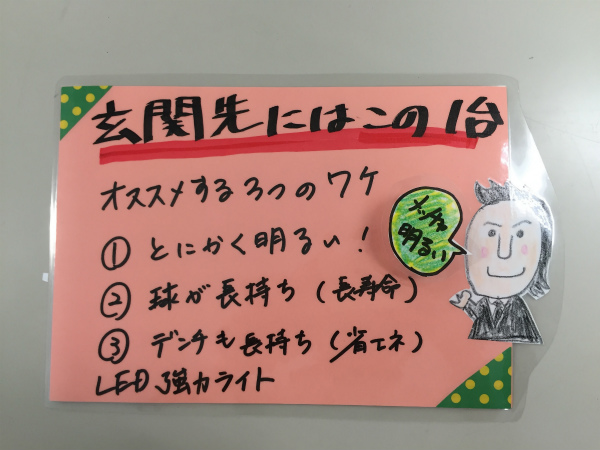 玄関先にはこの1台
オススメする3つのワケ
① とにかく明るい！
② 球が長持ち（長寿命）
③ デンチも長持ち（省エネ）
LED強力ライト
メッチャ
明るい